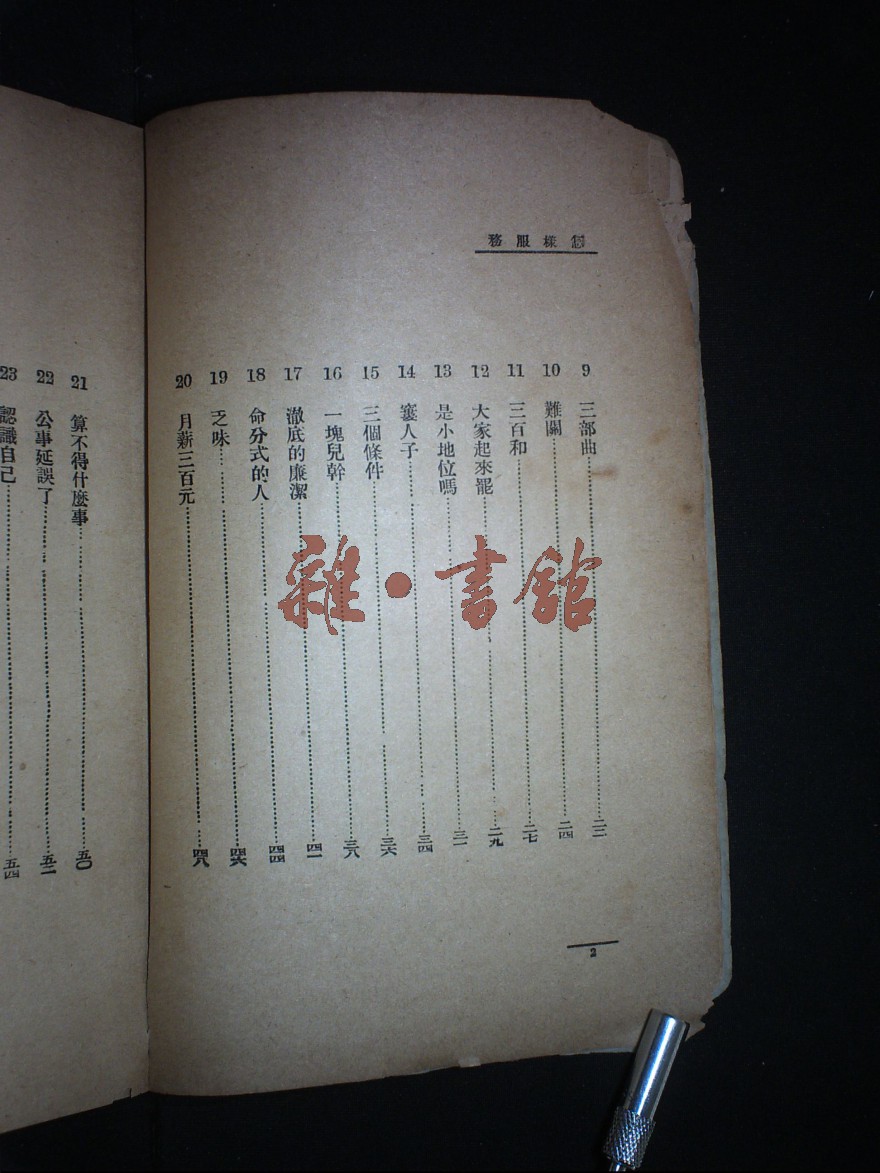 怎樣服務
9 三部曲 二二
10 難關 二四
11 三百和 二七
12 大家起來罷 二九
13 是小地位嗎 三一
14 褰人子 三四
15 三個條件 三六
16 一塊兒幹 三八
17 澈底的廉潔 四一
18 命分式的人 四四
19 乏味 四六
20 月薪三百元 四八
2
21 算不得什麼事 五〇
22 公事延誤了 五二
23 認識自己 五四
雜·書館